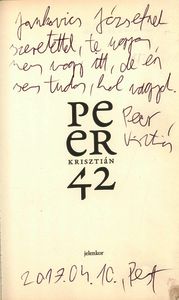 Jankovics Józsefnek
szeretettel, te ugyan
nem vagy itt, de én
sem tudom, hol vagyok.
Peer
Krisztián
PE
ER
KRISZTIÁN
42
jelenkor
2017.04.10., Pest